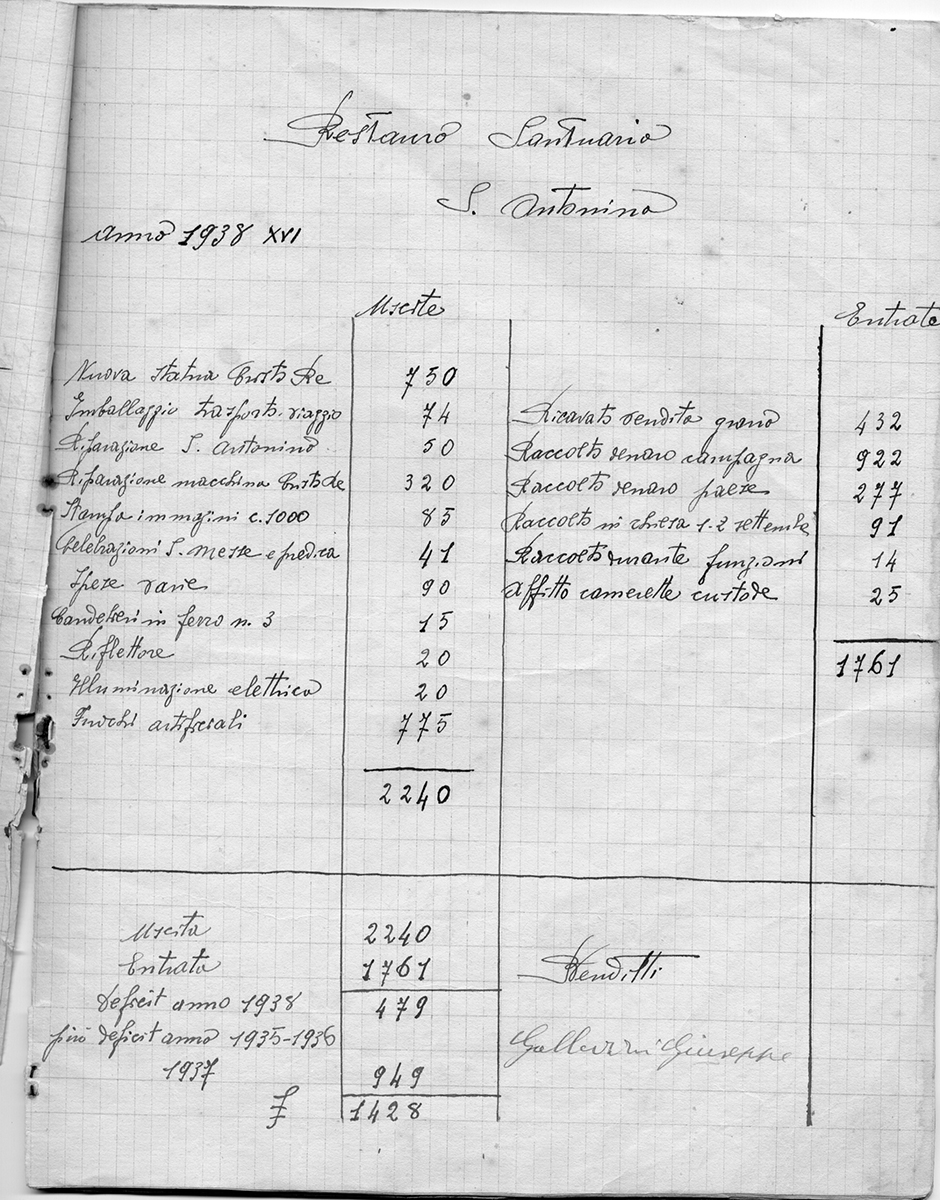 Restauro Santuario
S. Antonino
Anno 1938 XVI
Uscite
Entrate
Nuova statua Cristo Re 750
Imballaggio trasporto viaggio 74
Ricavato vendita grano 432
Riparazione S. Antonino 50
Raccolto denaro campagna 922
Riparazione macchina Cristo Re 320
Raccolto denaro paese 277
Stampa immagini c. 1000 85
Raccolto in chiesa 1-2 settembre 91
Celebrazioni S. Messe e predica 41
Raccolto durante funzioni 14
Spese varie 90
Affitto camerette custode 25
Candelieri in ferro n. 3 15
Riflettore 20
1761
Illuminazione elettrica 20
Fuochi artificiali 775
2240
Uscita 2240
Entrata 1761
Venditti
deficit anno 1938 479
più deficit anno 1935-1936
1937 949
Giuseppe
£ 1428